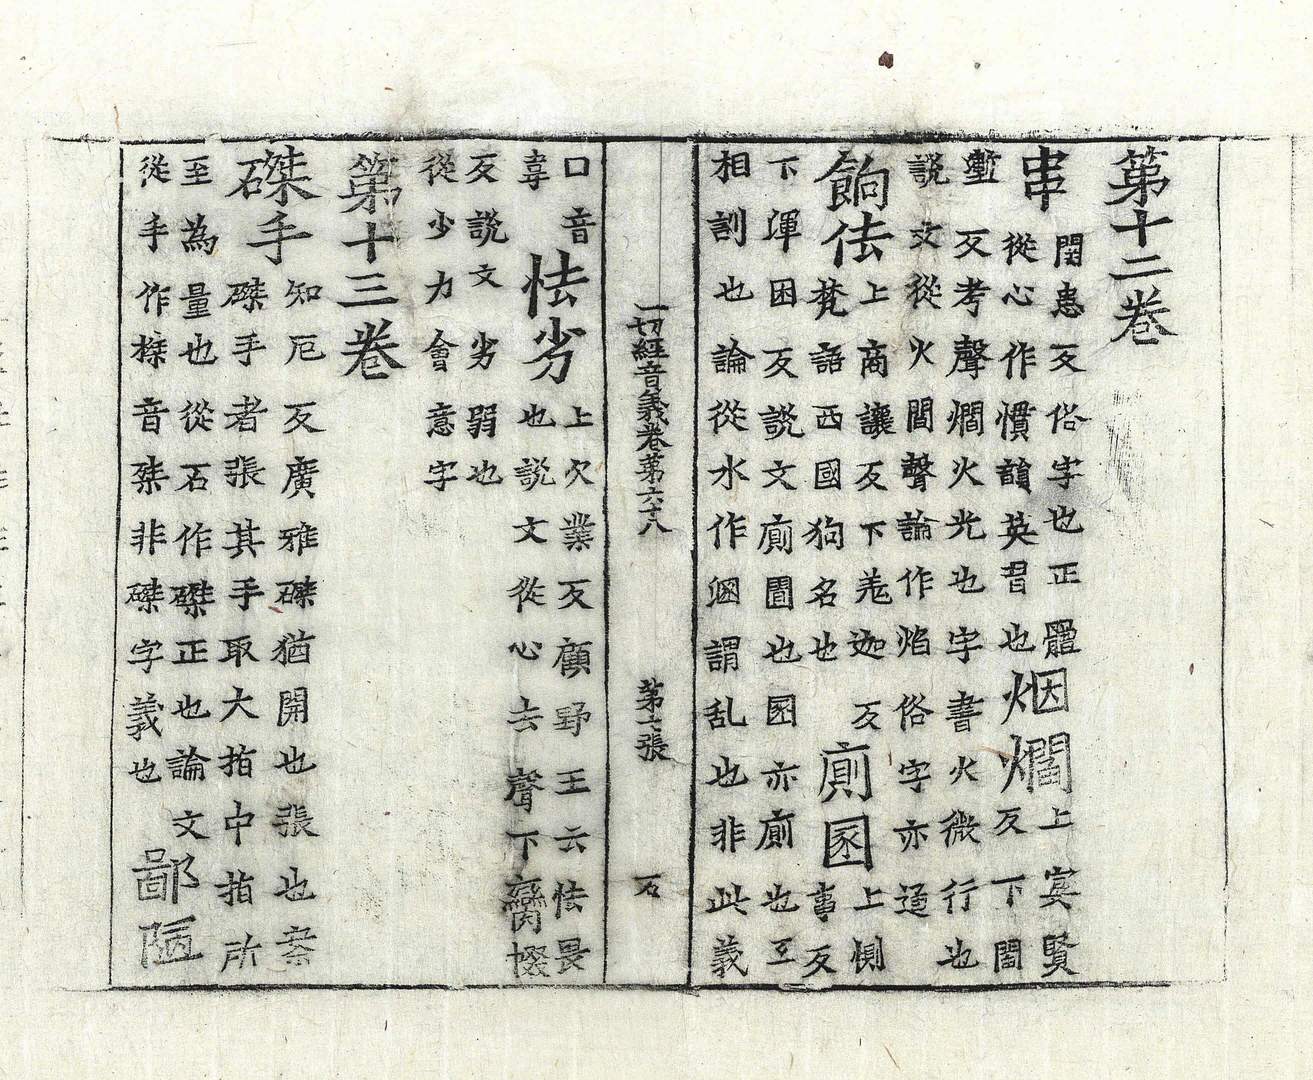 第十二卷
串
閞患反俗字也正體
從心作慣韻英習也
烟爓
上宴賢
反下閻
壍反考聲爓火光也字書火微行也
說文從火閻聲論作焰俗字亦通
餉佉
上商讓反下羌迦反
梵語西國狗名也
廁圂
上惻
事反
下渾困反說文廁圊也圂亦廁也互
相訓也論從水作溷謂乱也非此義
一切經音義卷第六十八 第七張 石
口音
韋
怯劣
上欠業反顧野王云怯畏
也說文從心去聲下臠惙
反說文劣弱也
從少力會意字
第十三卷
磔手
知厄反廣雅磔猶開也張也案
磔手者張其手取大指中指所
至為量也從石作磔正也論文
從手作搩音桀非磔字義也
鄙陋